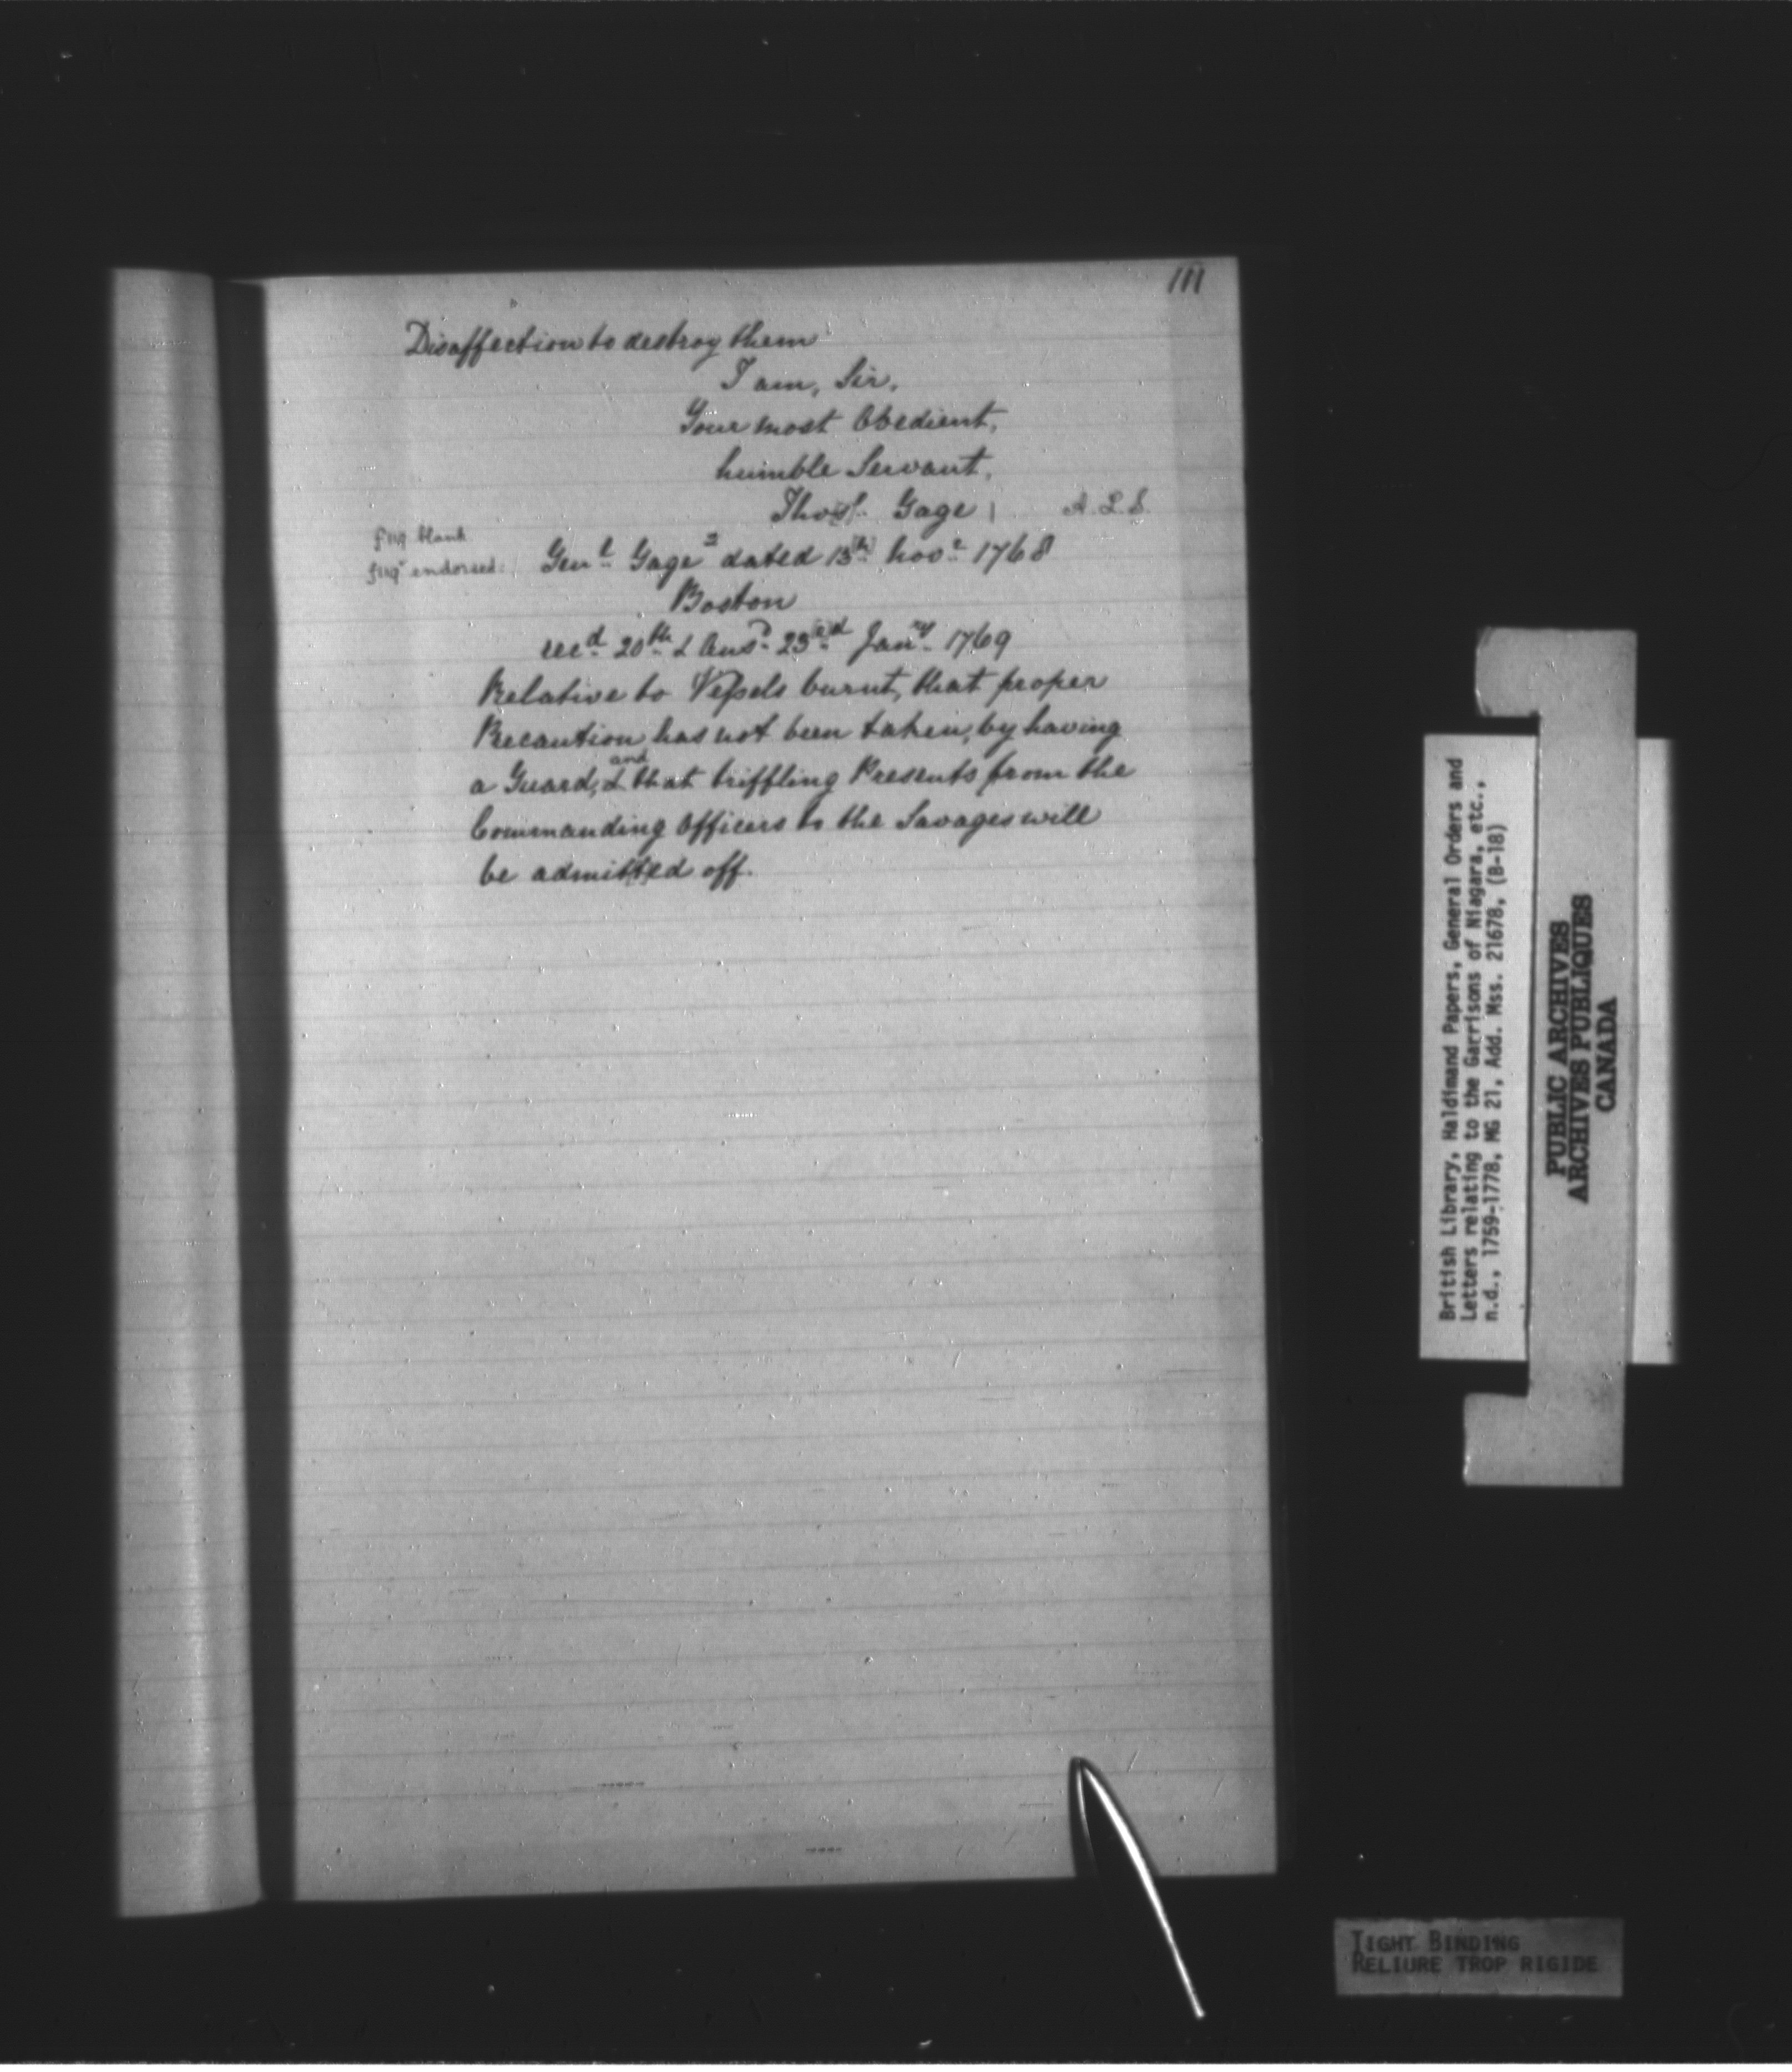 111
Disaffection to destroy them
I am, Sir,
Your most Obedient,
humble Servant,
Thos. Gage A.L.S.
f119 blank
f119v endorsed: Genl Gages dated 13th Novr 1768
Boston
recd 20th & Ansd 23rd Janry 1769
Relative to Vessels burnt, that proper
Precaution has not been taken, by having
and
a Guard, & that triffling Presents from the
Commanding Officers to the Savages will
be admitted off.
British Library, Haldimand Papers, General Orders and
Letters relating to the Garrisons of Niagara, etc.,
n.d., 1759-1778, MG 21, Add. Mss. 21678, (B-18)
PUBLIC ARCHIVES
ARCHIVES PUBLIQUES
CANADA
TIGHT BINDING
RELIURE TROP RIGIDE